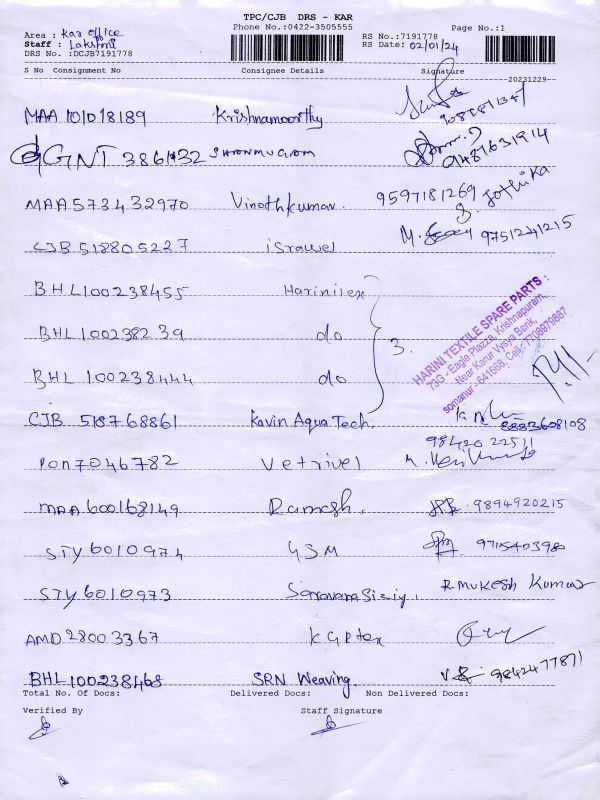 TPC/CJB DRS - KAR
Phone No.:0422-3505555
Page No.:1
Area : Kar office
Staff : Lakshmi
DRS No. :DCJB7191778
RS No.:7191778
RS Date: 02/01/24
S No Consignment No Consignee Details Signature
20231229
MAA 101018189 Krishnamoorthy
GNT 3861432 Shanmugam 9487631914
MAA573432970 Vinothkumar. 9597181269 Jothika
CJB 518805227 israwel 9751241215
BHL100238455 Harinitex
BHL100238239 do 3.
BHL 100238444 do
HARINI TEXTILE SPARE PARTS :
73G - Eagle Plazza, Krishnapuram,
Near Karur Vysya Bank,
somanur - 641668, Cell: 7708979887
CJB 518768861 Kavin Aqua Tech. 8883608108
PON7046782 Vetrivel 98420 22511
MAA600168149 Ramesh. 9894920215
STY6010974 GSM 9715403980
STY6010973 R. Mukesh Kumar
AMD 28003367 KGR tex
BHL100238468 SRN Weaving. 9842477871
Total No. Of Docs: Delivered Docs: Non Delivered Docs:
Verified By Staff Signature